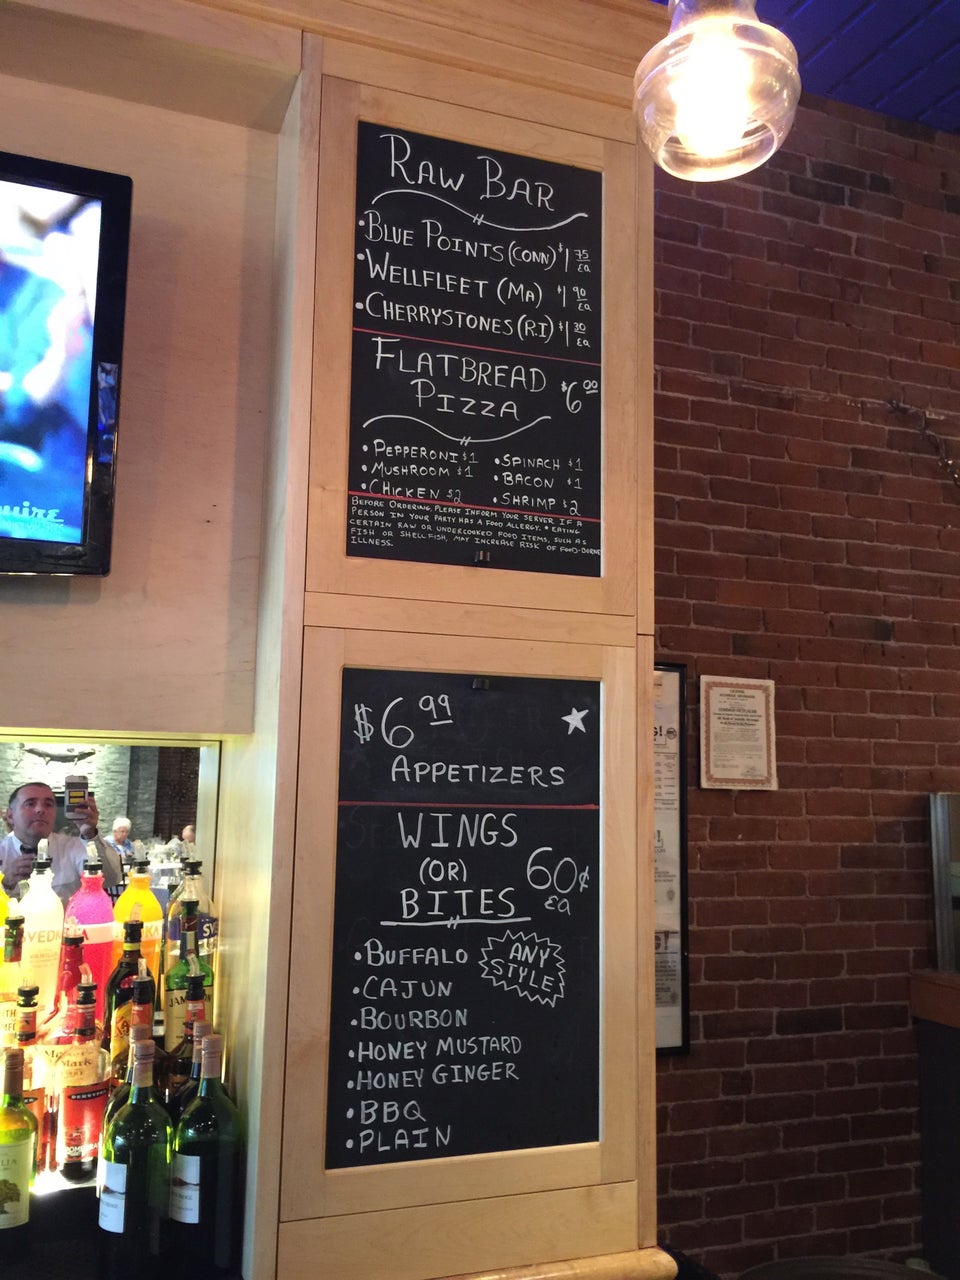 RAW BAR
• BLUE POINTS (CONN) $1 75 EA
• WELLFLEET (MA) $1 90 EA
• CHERRYSTONES (R.I) $1 30 EA
FLATBREAD
PIZZA $6 00
• PEPPERONI $1
• MUSHROOM $1
• CHICKEN $2
• SPINACH $1
• BACON $1
• SHRIMP $2
BEFORE ORDERING, PLEASE INFORM YOUR SERVER IF A
PERSON IN YOUR PARTY HAS A FOOD ALLERGY. * EATING
CERTAIN RAW OR UNDERCOOKED FOOD ITEMS, SUCH AS
FISH OR SHELLFISH, MAY INCREASE RISK OF FOOD-BORNE
ILLNESS.
$6 99
APPETIZERS
WINGS
(OR)
BITES
60¢
EA
ANY
STYLE
• BUFFALO
• CAJUN
• BOURBON
• HONEY MUSTARD
• HONEY GINGER
• BBQ
• PLAIN